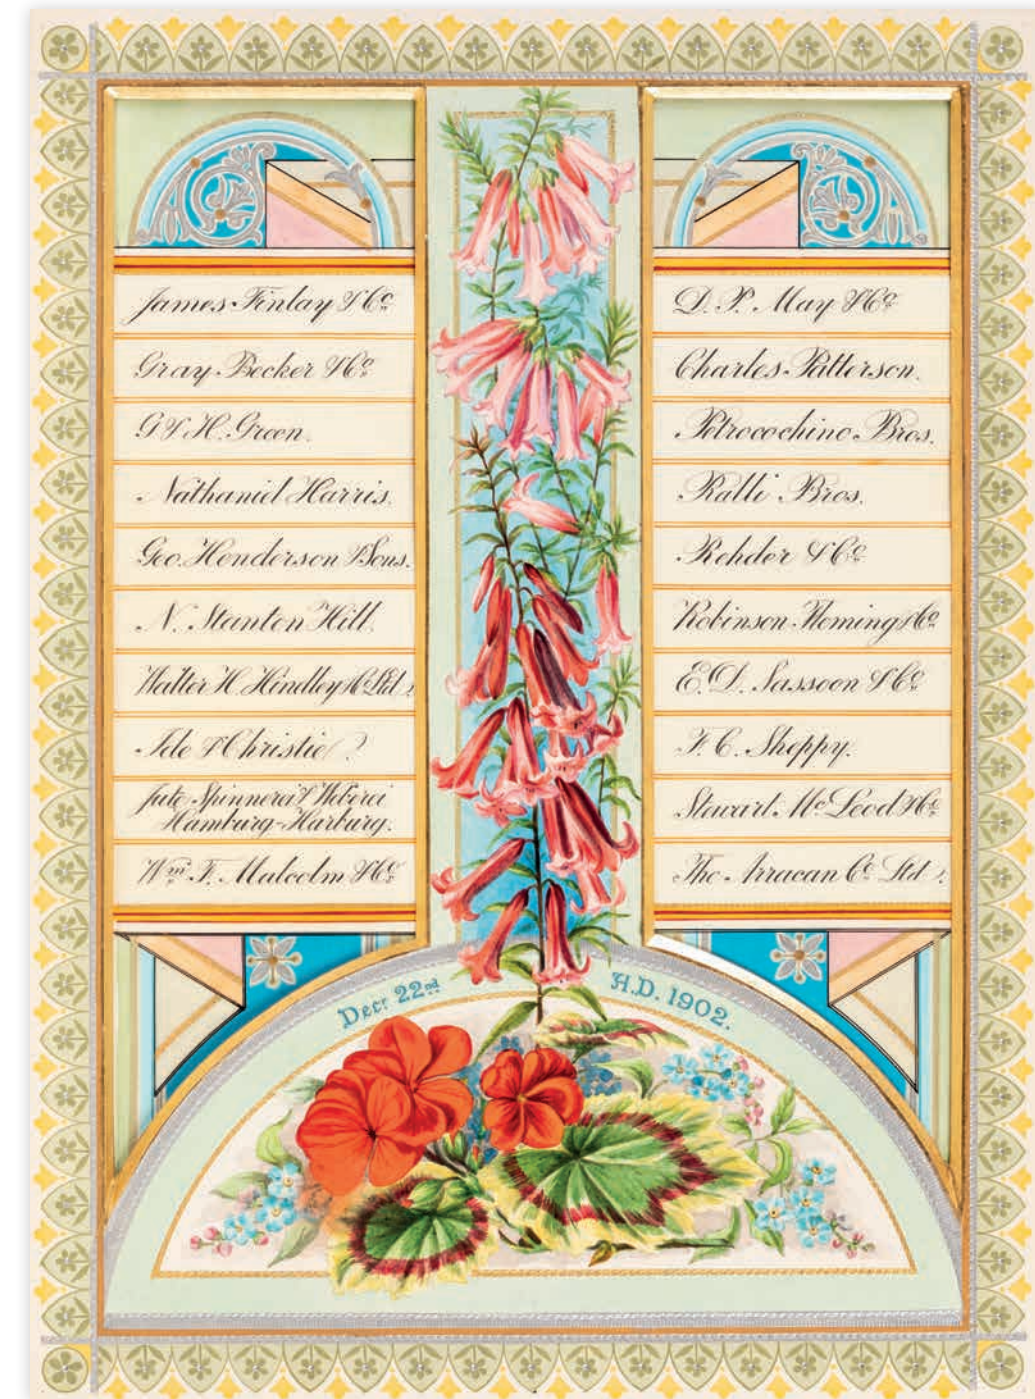 James Finlay & Co.
Gray Becker & Co.
G & H. Green.
Nathaniel Harris.
Geo. Henderson & Sons.
N. Stanton Hill.
Walter H Hindley & Co Ltd.
Ide & Christie
Jute Spinnerei & Weberei
Hamburg-Harburg.
Wm. F. Malcolm & Co.
D. P. May & Co.
Charles Patterson.
Petrocochino Bros.
Ralli Bros.
Rehder & Co.
Robinson Fleming & Co.
E. D. Sassoon & Co.
F. C. Sheppy.
Stewart McLeod & Co.
The Arracan Co. Ltd.
Decr. 22nd A.D. 1902.